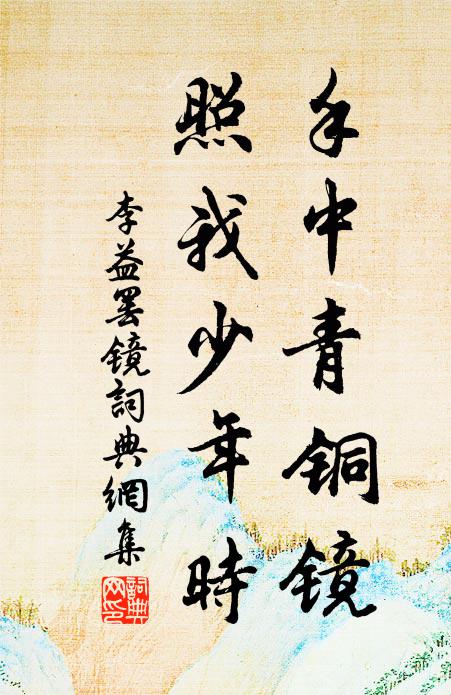 手中青铜镜
照我少年時
李益罢镜詞典網集
詞典網印